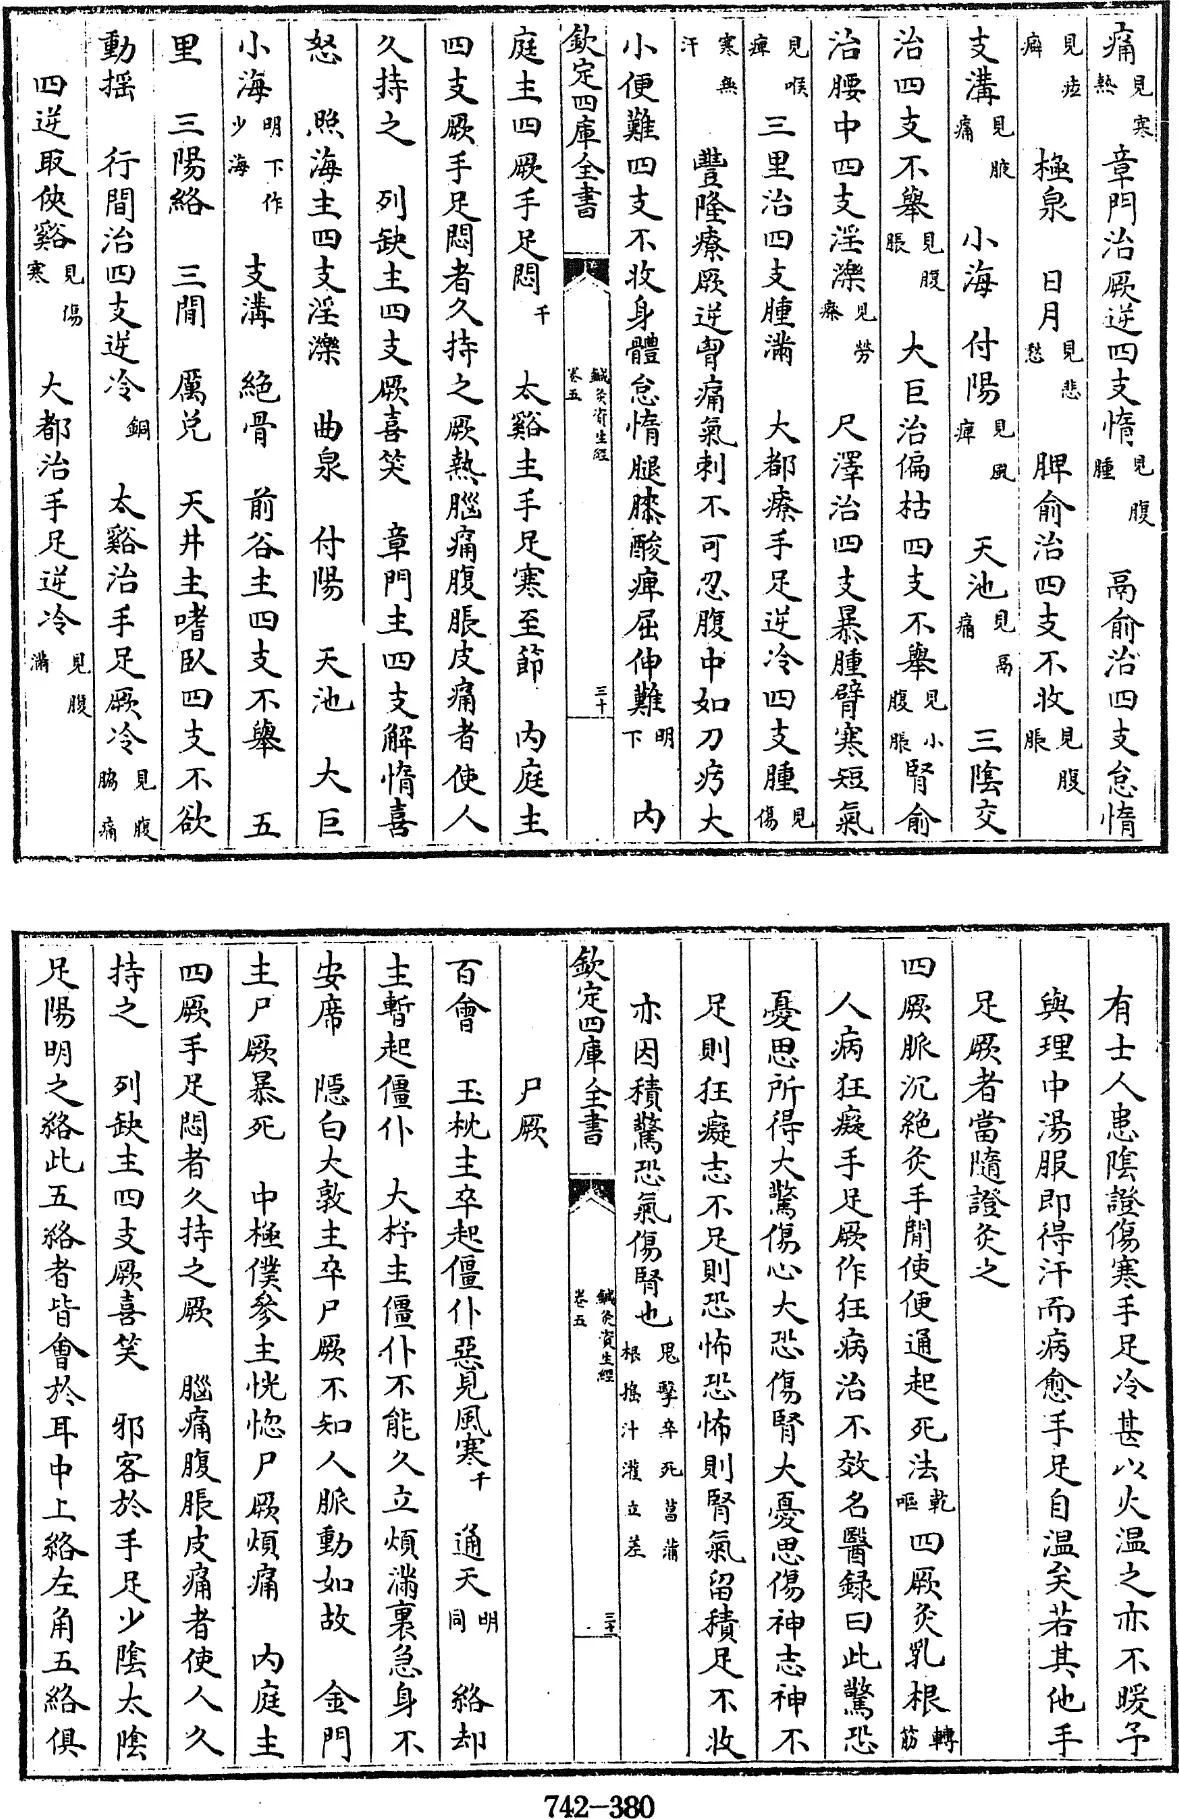 痛見寒熱 章門治厥逆四支惰見腹腫 鬲俞治四支怠惰
見痃癖 極泉 日月見悲愁 脾俞治四支不收見腹脹
支溝見腋痛 小海 付陽見風痺 天池見鬲痛 三陰交
治四支不舉見腹脹 大巨治偏枯四支不舉見小腹脹 腎俞
治腰中四支淫濼見勞瘵 尺澤治四支暴腫臂寒短氣
見喉痺 三里治四支腫滿 大都療手足逆冷四支腫見傷
寒無汗 豐隆療厥逆胷痛氣刺不可忍腹中如刀疞大
小便難四支不收身體怠惰腿膝酸痺屈伸難明下 內
欽定四庫全書 鍼灸資生經卷五 三十
庭主四厥手足悶千 太谿主手足寒至節 內庭主
四支厥手足悶者久持之厥熱腦痛腹脹皮痛者使人
久持之 列缺主四支厥喜笑 章門主四支解惰喜
怒 照海主四支淫濼 曲泉 付陽 天池 大巨
小海明下作少海 支溝 絕骨 前谷主四支不舉 五
里 三陽絡 三間 厲兌 天井主嗜臥四支不欲
動摇 行間治四支逆冷銅 太谿治手足厥冷見腹脇痛
四逆取俠谿見傷寒 大都治手足逆冷見腹滿
有士人患陰證傷寒手足冷甚以火温之亦不暖予
與理中湯服即得汗而病愈手足自温矣若其他手
足厥者當隨證灸之
四厥脈沉絕灸手間使便通起死法乾嘔 四厥灸乳根轉筋
人病狂癡手足厥作狂病治不效名醫録曰此驚恐
憂思所得大驚傷心大恐傷腎大憂思傷神志神不
足則狂癡志不足則恐怖恐怖則腎氣留積足不收
亦因積驚恐氣傷腎也鬼擊卒死菖蒲根搗汁灌立差
欽定四庫全書 鍼灸資生經卷五 三十一
尸厥
百會 玉枕主卒起僵仆惡見風寒千 通天明同 絡却
主暫起僵仆 大杼主僵仆不能久立煩滿裏急身不
安席 隱白大敦主卒尸厥不知人脈動如故 金門
主尸厥暴死 中極僕參主恍惚尸厥煩痛 內庭主
四厥手足悶者久持之厥 腦痛腹脹皮痛者使人久
持之 列缺主四支厥喜笑 邪客於手足少陰太陰
足陽明之絡此五絡者皆會於耳中上絡左角五絡俱
742-380